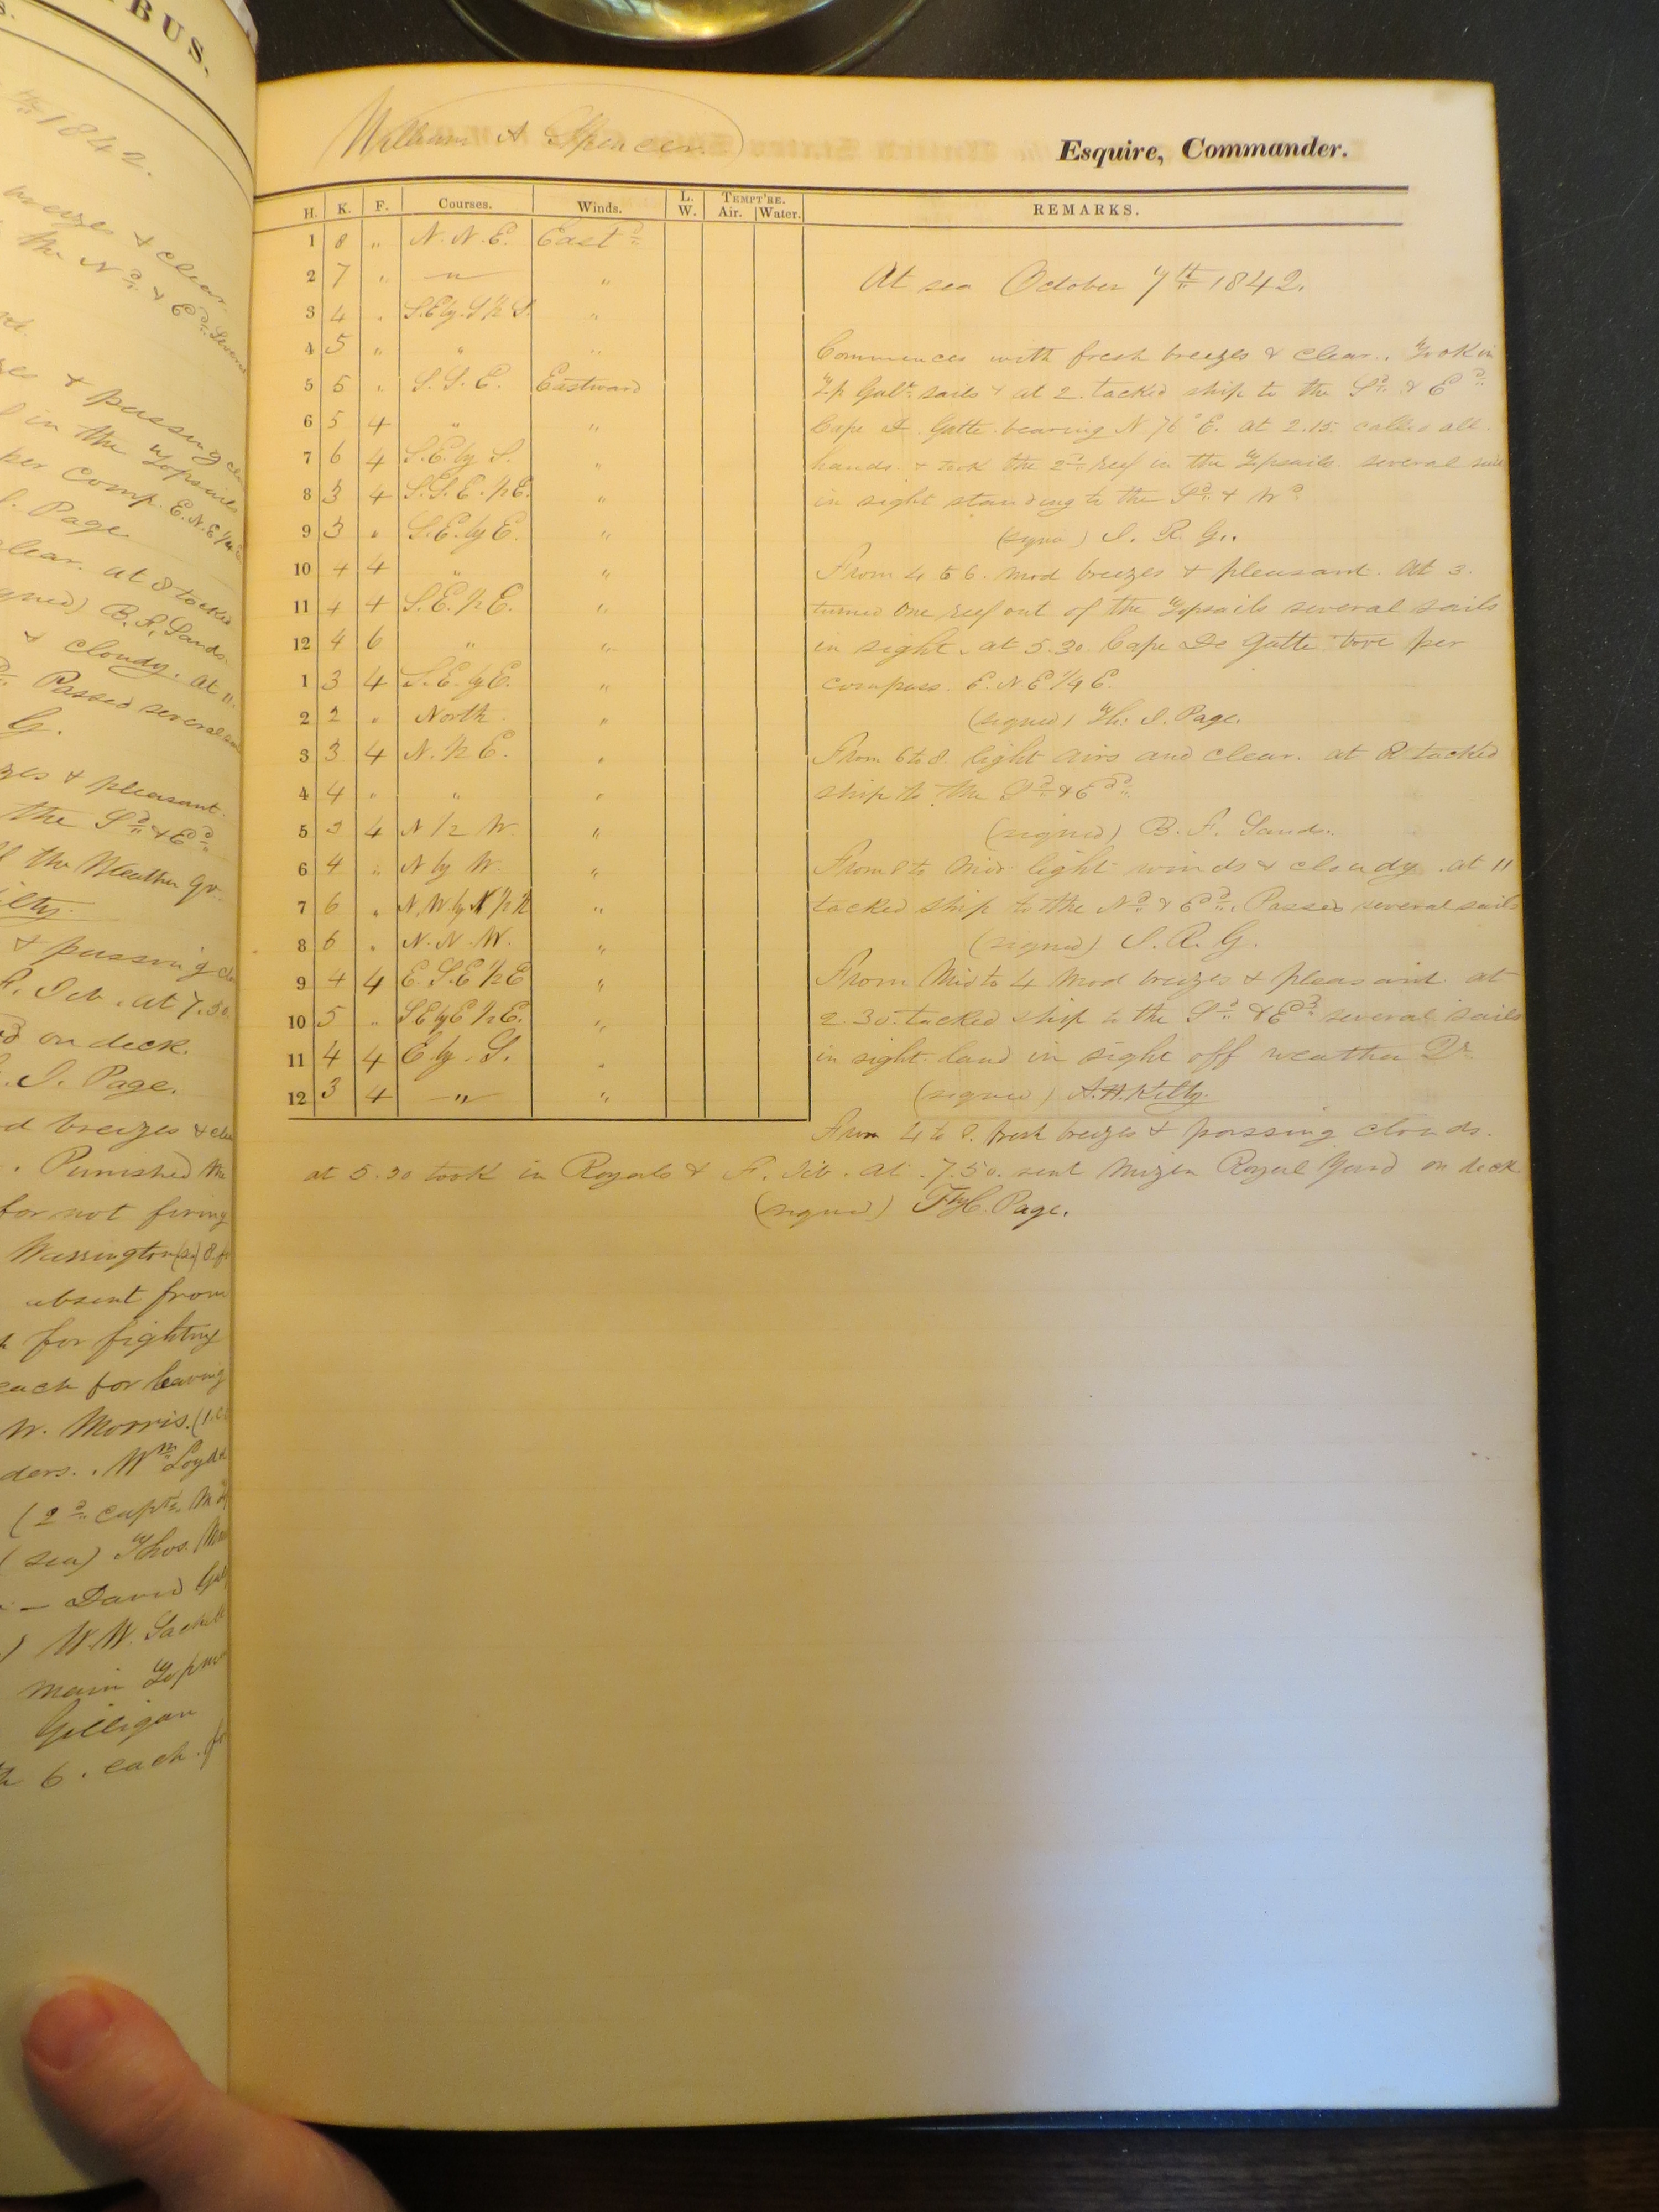 BUS.
1842.
breezes & clear.
the Nd & Ed. Several
& passing
in the Topsails
per Comp. E.N.E 1/4
Page
clear. at 8 tacked
B. F. Sands.
& cloudy. at 11.
Passed several
G.
& pleasant.
the Sd & Ed
the Weather Qr.
& passing
Jib. at 7.50.
on deck.
J. Page.
breezes & clear
Punished
for not firing
Warrington
absent from
for fighting
each for leaving
W. Morris.
ders. . Wm Loyd
(2d Captn
(sea) Thos.
David
W.W. Sackett
main Topm
Gilligan
6. each. for
William A Spencer
Esquire, Commander.
H. K. F. Courses. Winds. L. W. TEMPT'RE. Air. Water. REMARKS.
1 8 " N.N.E. Eastd
2 7 " " "
3 4 " S.E by S 1/2 S. "
4 5 " " "
5 5 " S.S.E. Eastward
6 5 4 " "
7 6 4 S.E. by S. "
8 3 4 S.S.E. 1/2 E. "
9 3 " S.E. by E. "
10 4 4 " "
11 4 4 S.E. 1/2 E. "
12 4 6 " "
1 3 4 S.E. by E. "
2 2 " North "
3 3 4 N. 1/2 E. "
4 4 " " "
5 3 4 N 1/2 W. "
6 4 " N by W. "
7 6 " N.W by N 1/2 N "
8 6 " N.N.W. "
9 4 4 E.S.E 1/2 E "
10 5 " SE by E 1/2 E. "
11 4 4 E. by S. "
12 3 4 " "
At sea October 7th 1842.
Commences with fresh breezes & clear. Took in
Tp Galt sails & at 2. tacked ship to the Sd & Ed
Cape D. Gatte bearing N 76° E. at 2.15. called all
hands & took the 2d reef in the Topsails. several sail
in sight standing to the Sd & Wd
(signd) J. R. G.
From 4 to 6. mod breezes & pleasant. At 3.
turned One reef out of the Topsails several sails
in sight. at 5.30. Cape De Gatte bore per
compass. E.N E 1/4 E.
(signed) Th: J. Page.
From 6 to 8. light airs and clear. at 8 tacked
ship to the Sd & Ed
(signed) B. F. Sands.
From 8 to Mid light winds & cloudy. at 11
tacked ship to the Nd & Ed. Passed several sails
(signed) J. R. G.
From Mid to 4 Mod breezes & pleasant at
2.30. tacked ship to the Sd & Ed several sails
in sight. land in sight off weather Qr.
(signed) A.H. Kilty.
From 4 to 8. fresh breezes & passing clouds.
at 5.30 took in Royals & F. Jib. At 7.50. sent Mizen Royal Yard on deck
(signed) Page.